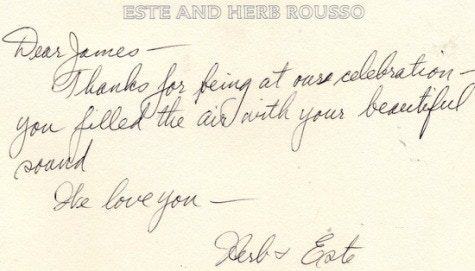 ESTE AND HERB ROUSSO
Dear James —
Thanks for being at our celebration —
you filled the air with your beautiful
sound
We love you —
Herb & Este